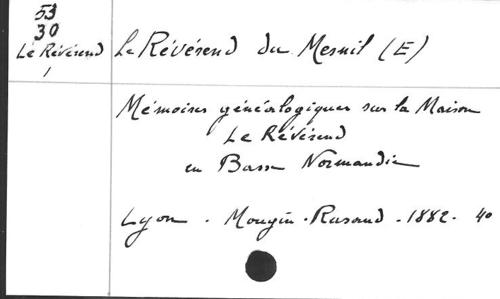 53
30
Le Révérend
1
Le Révérend du Mesnil (E)
Mémoires généalogiques sur la Maison
Le Révérend
en Basse Normandie
Lyon . Mougin-Rusand . 1882. 4o